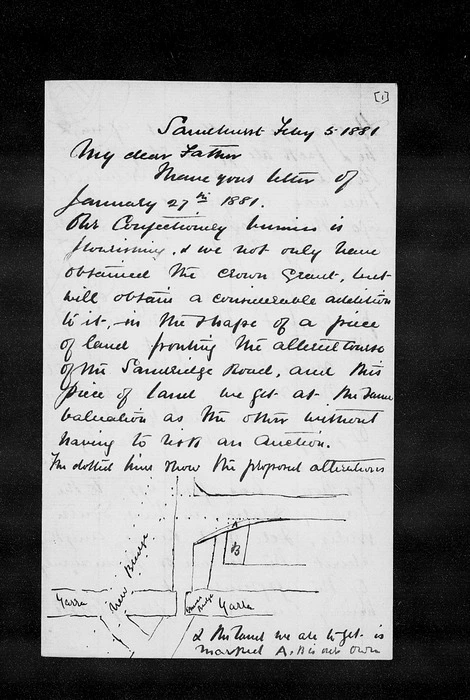 [1]
Sandhurst Feby 5 1881
My dear Father
I have yours letter of
January 27th 1881.
Our Confectionery business is
flourishing, & we not only have
obtained the Crown Grant, but
will obtain a considerable addition
to it, in the shape of a piece
of land fronting the altered course
of the Sandridge Road, and this
piece of land we get at the same
valuation as the other without
having to risk an auction.
The dotted lines show the proposed alterations
A
B
New Bridge
Yarra
Bridge
Yarra
& the land we are to get is
marked A, B is our own